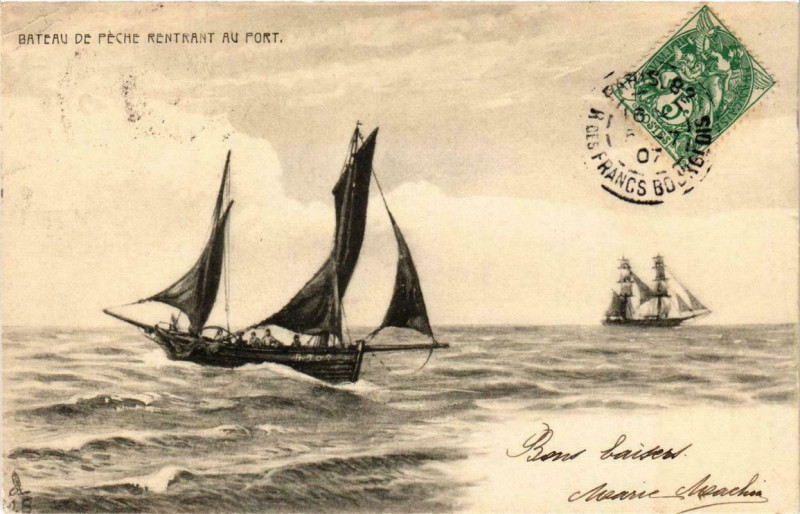 BATEAU DE PÊCHE RENTRANT AU PORT.
PARIS 82
5
POSTES
07
R DES FRANCS BOURGEOIS
Bons baisers.
Marie Machin